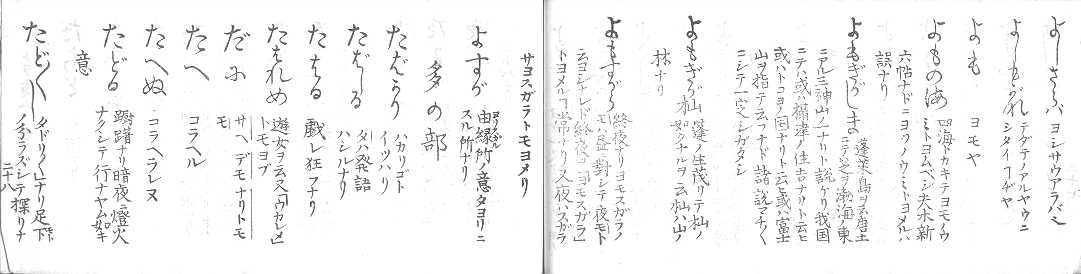 よしさらバ ヨシサウアラバ也
よしもがれ テダテノアルヤウニ
シタイコヂヤ
よも ヨモヤ
よもの海 四海トカキテヨモノウ
ミトヨムベシ夫木新
六帖ナドニヨウノウミトヨメルハ
誤ナリ
よもぎがしま 蓬莱島ヲ云唐土
ニテ是ヲ渤海ノ東
ニアル三神山ノ一ナリト説ケリ我国
ニテハ或ハ摂津ノ住吉ナリト云ヒ
或ハトコヨノ国ナリト云ヒ或ハ富士
山ヲ指テ云フナド諸説マチ〱
ニシテ一定シガタシ
よもぎが杣 蓬ノ生茂リテ杣ノ
如クナルヲ云杣ハ山ノ
林ナリ
よもすがら 終夜ナリヨモスガラノ
モハ昼ニ対シテ夜モト
云ヨシナレド終夜ヲ「ヨモスガラ」
トヨメルヿ常ナリ又夜ハスガラ
サヨスガラトモヨメリ
よすが 由縁所ノ意タヨリニ
スル所ナリ
多の部
たばかり ハカリゴト
イツハリ
たばしる タハ発語
ハシルナリ
たはる 戯レ狂フナリ
たはれめ 遊女ヲ云又「ウカレメ」
トモヨブ
だに サヘデモナリトモ
モ
たへ コラヘル
たへぬ コラヘラレヌ
たどる 躑躅ナリ暗夜ニ燈火
ナクシテ行ナヤム如キ
意
たど〱し タドリ〱ナリ足下
ノ分ラズシテ探リナ
二十八